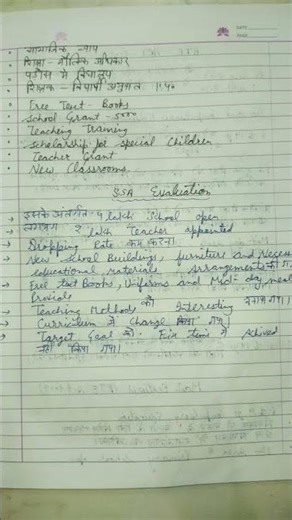 सामाजिक न्याय
शिक्षा - मौलिक अधिकार
पड़ोस में विद्यालय
शिक्षक - विद्यार्थी अनुपात 1:40
Free Text - Books
School Grant - 5000
Teaching Training
Scholarship for special Children
Teacher Grant
New Classrooms
SSA Evaluation
→ इसके अंतर्गत 4 lakh School open
→ लगभग 2 lakh Teacher appointed
→ Dropping Rate कम करना
→ New School Buildings, furniture and
educational materials arrangements की
→ Free Text Books, Uniforms and Mid-day meal
Provide
→ Teaching Methods को Interesting बनाया गया।
→ Curriculum में Change किया गया।
→ Target Goal को Fix time में Achived
नहीं किया गया।